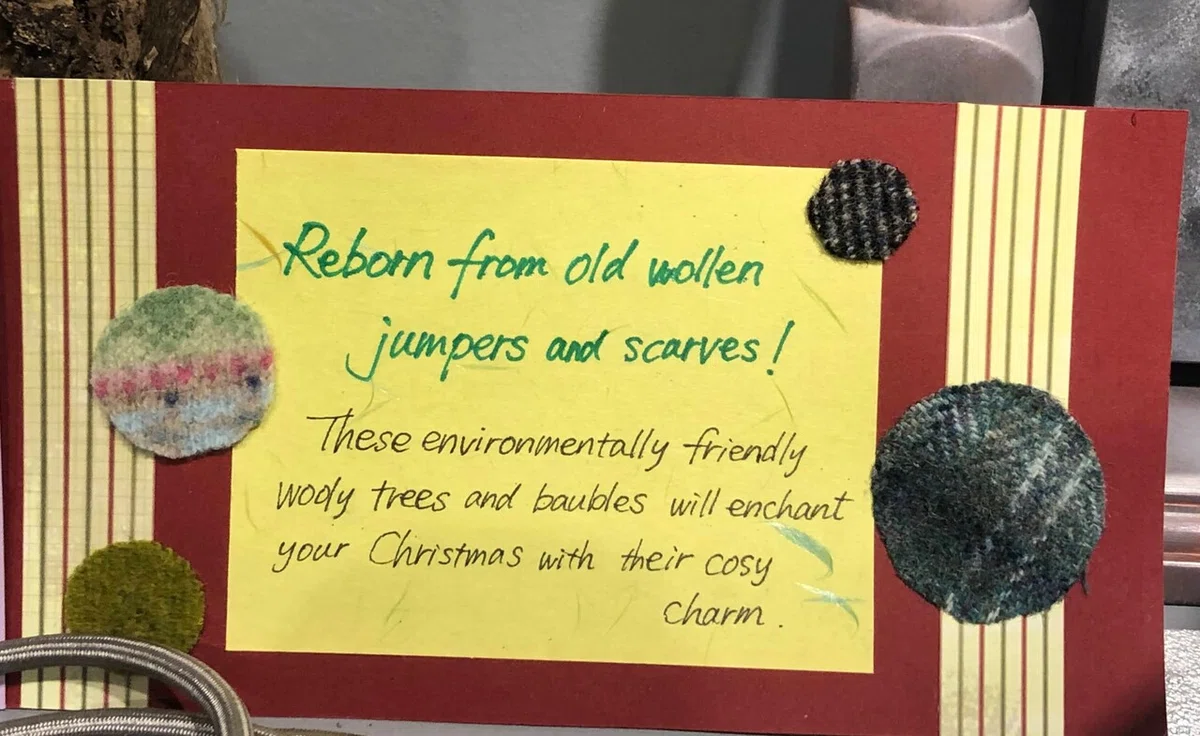 Reborn from old wollen
jumpers and scarves!
These environmentally friendly
wooly trees and baubles will enchant
your Christmas with their cosy
charm.